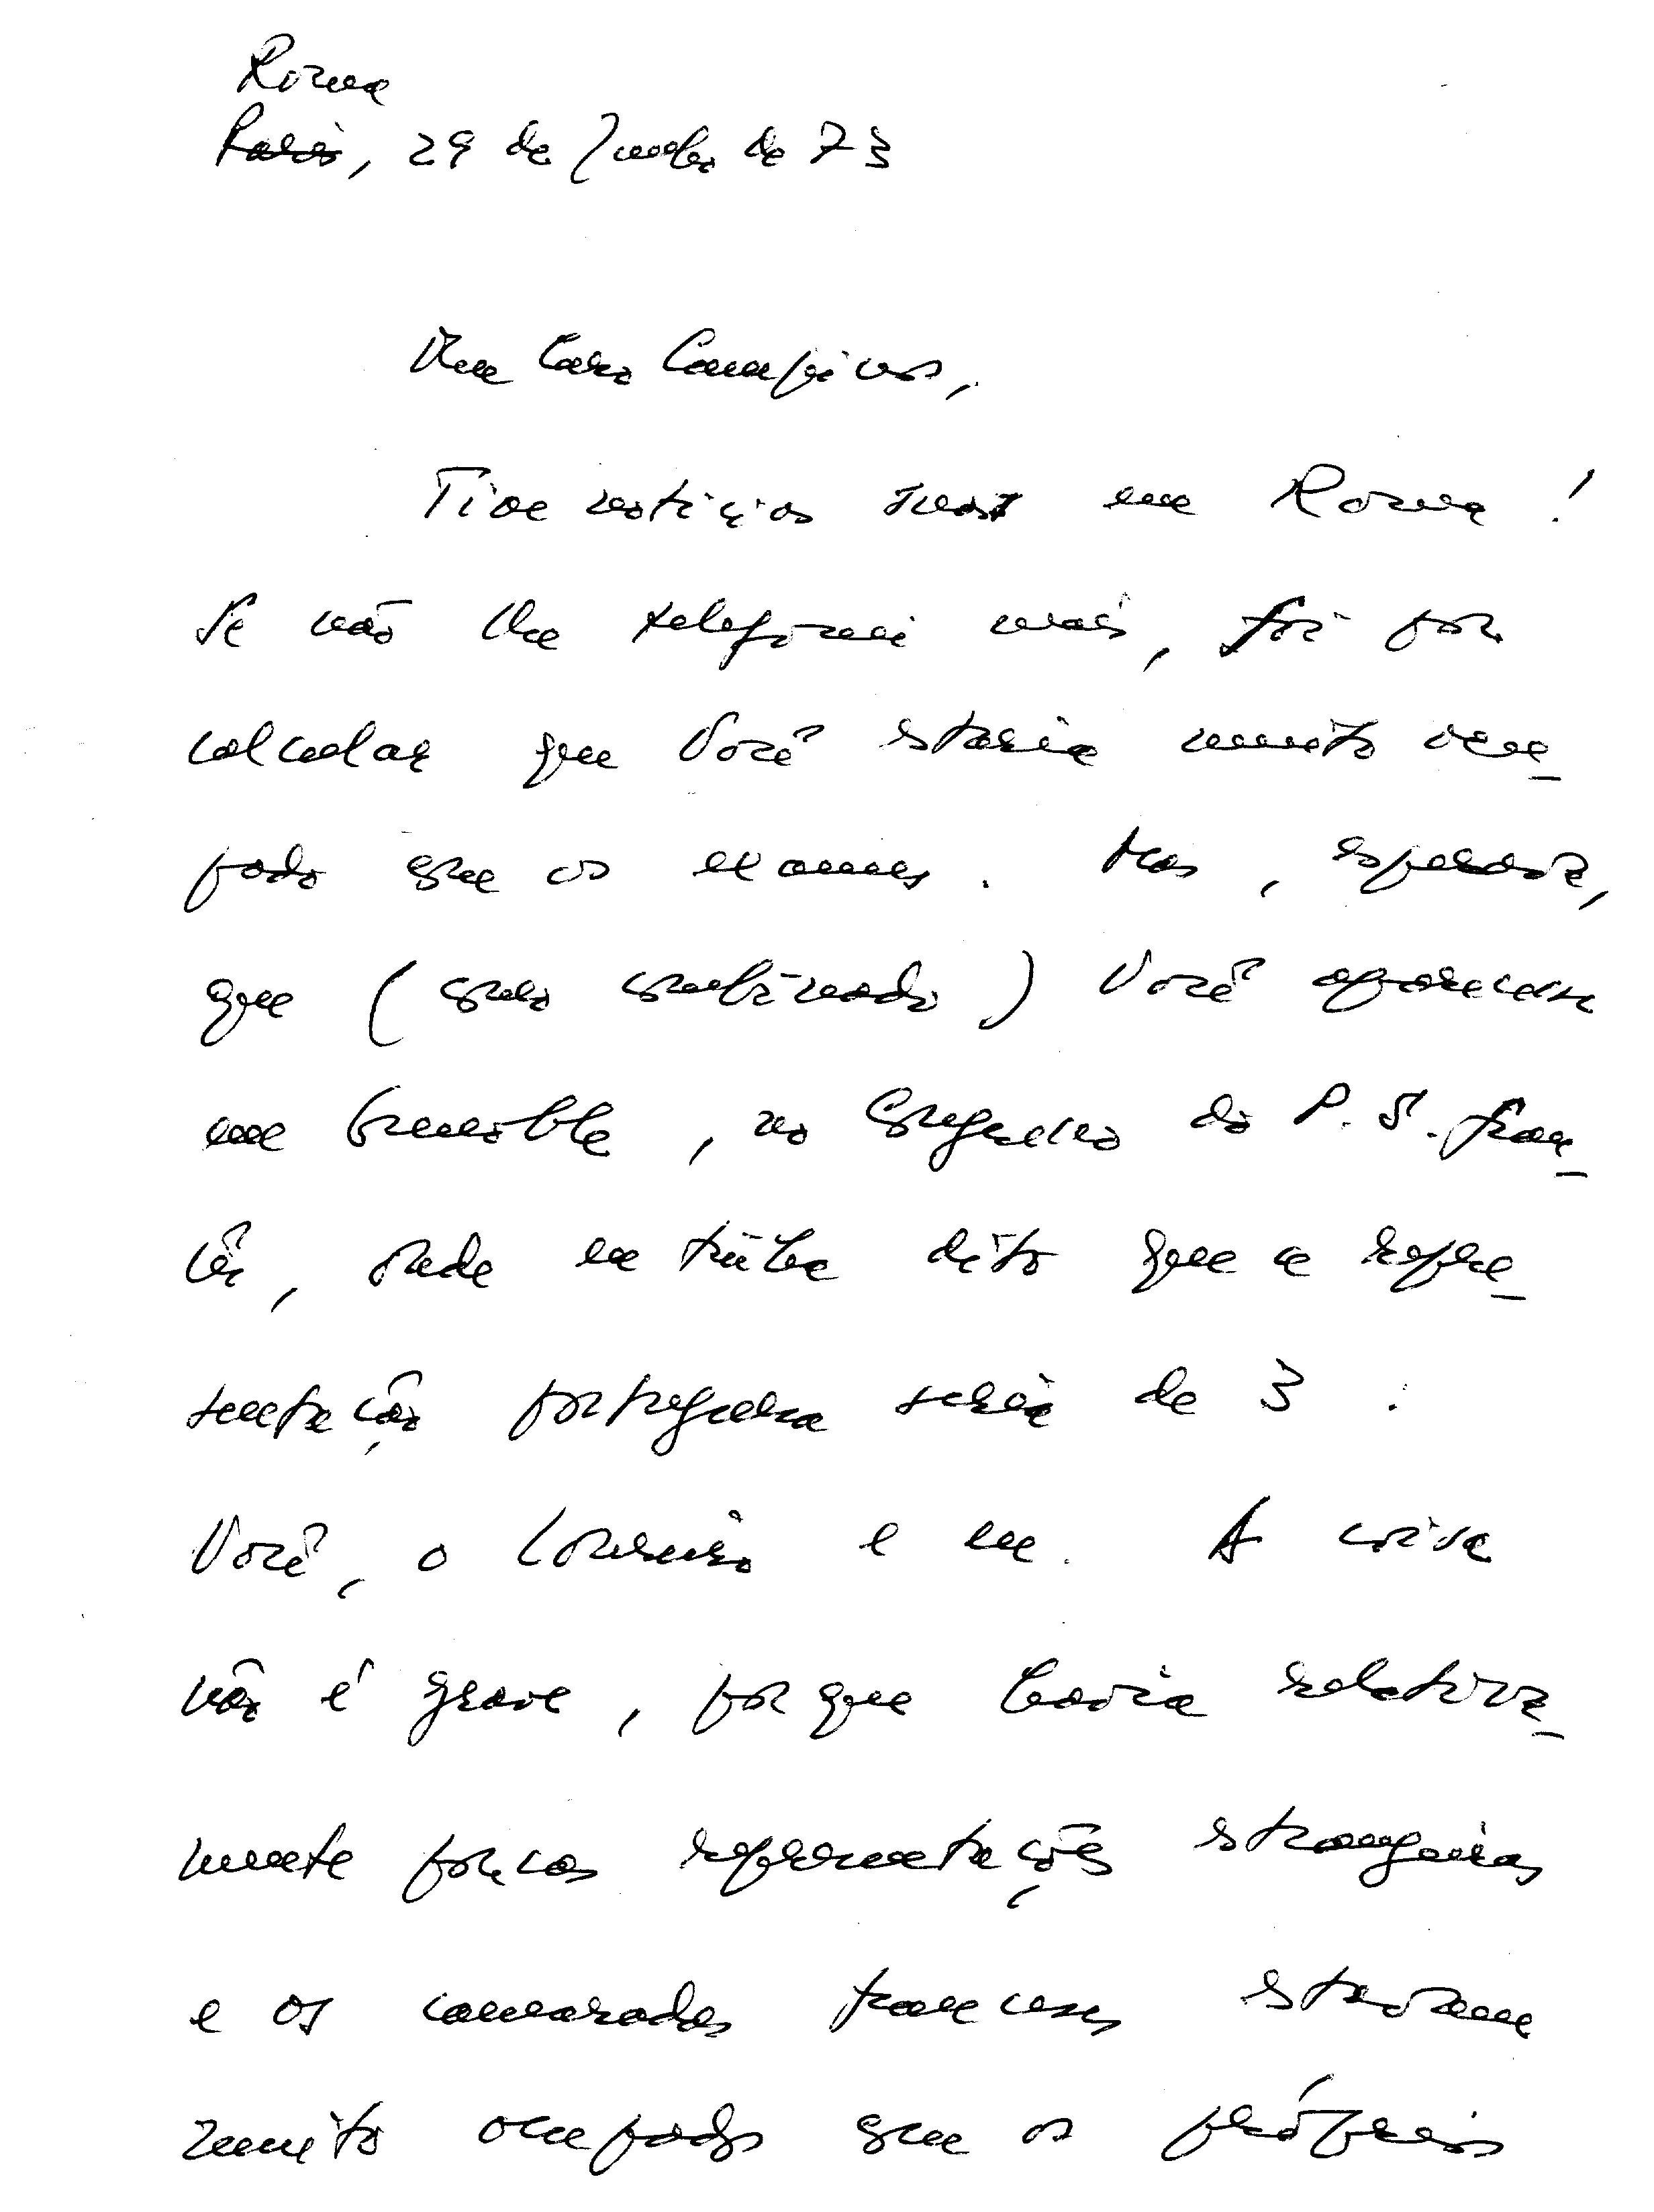 Roma
Paris, 29 de Junho de 73
Meu Caro Campinos,
Tive notícias suas em Roma!
Se não lhe telefonei mais, foi por
calcular que Você estaria muito ocu-
pado com os exames. Mas, esperava,
que (como combinado) Você aparecesse
em Grenoble, no Congresso do P.S. fran-
cês, onde eu tinha dito que a repre-
sentação portuguesa seria de 3:
Você, o Loureiro e eu. A coisa
não é grave, porque havia relativa-
mente poucas representações estrangeiras
e os camaradas franceses estavam
muito ocupados com os próprios